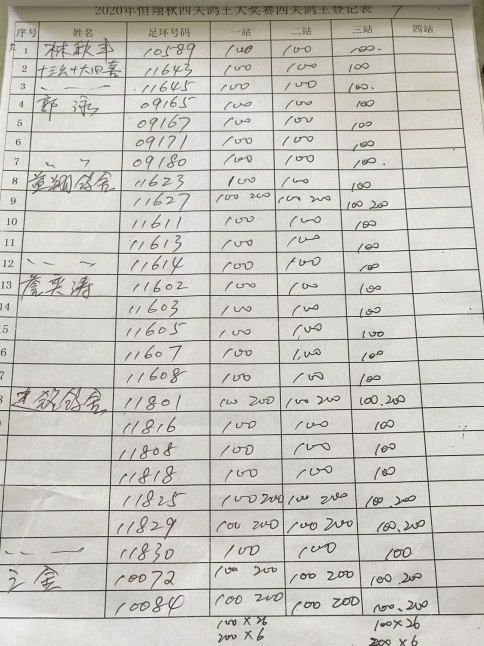 2020年恒翔秋四关鸽王大奖赛四关鸽王登记表
序号 姓名 足环号码 一站 二站 三站 四站
1 林秋丰 10589 100 100 100.
2 十三幺十大四喜 11643 100 100 100
3 〃 一 11645 100 100 100.
4 09165 100 100 100
5 09167 100 100 100
6 09171 100 100 100
7 〃 〃 09180 100 100 100.
8 翔鸽舍 11623 100 100 100
9 11627 100 200 100 200 100 200
10 11611 100 100 100
11 11613 100 100 100
12 〃 一 11614 100 100 100
13 詹奕涛 11602 100 100 100
14 11603 100 100 100
5 11605 100 100 100
6 11607 100 100 100
7 11608 100 100 100
8 鸽舍 11801 100 200 100 200 100.200
11816 100 100 100
11808 100 100 100
11818 100 100 100
11825 100 200 100 200 100.200
11829 100 200 100 200 100.200
〃 一 11830 100 100 100
10072 100 200 100 200 100 200
10084 100 200 100 200 100.200
100×26 100×26
200×6 200×6